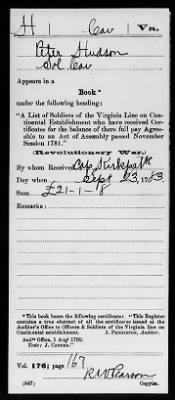 H | Cav | Va.
Peter Hudson
Sol Cav
Appears in a
Book*
under the following heading:
"A List of Soldiers of the Virginia Line on Con-
tinental Establishment who have received Cer-
tificates for the balance of their full pay Agree-
able to an Act of Assembly passed November
Session 1781."
(Revolutionary War.)
By whom Received Cap Kirkpatk
Day when Sept 23, 1783
Sum £21-1-8
Remarks:
*This book bears the following certificate: "This Register
contains a true abstract of all the certificates issued at the
Auditor's Office to Officers & Soldiers of the Virginia line on
Continental establishment. J. Pendleton, Auditor.
Aud* Office, 1 Aug 1792.
Teste: J. Carter."
Vol. 176; page 167
R W Pearson
(647) Copyist.